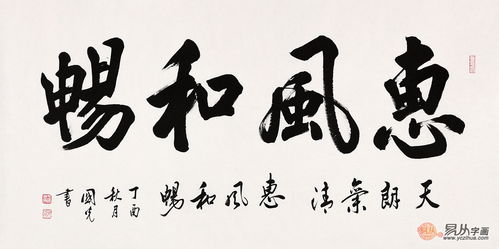 惠風和暢
天朗氣清 惠風和暢
丁酉
秋月
國光
書
易从字画
www.yczihua.com